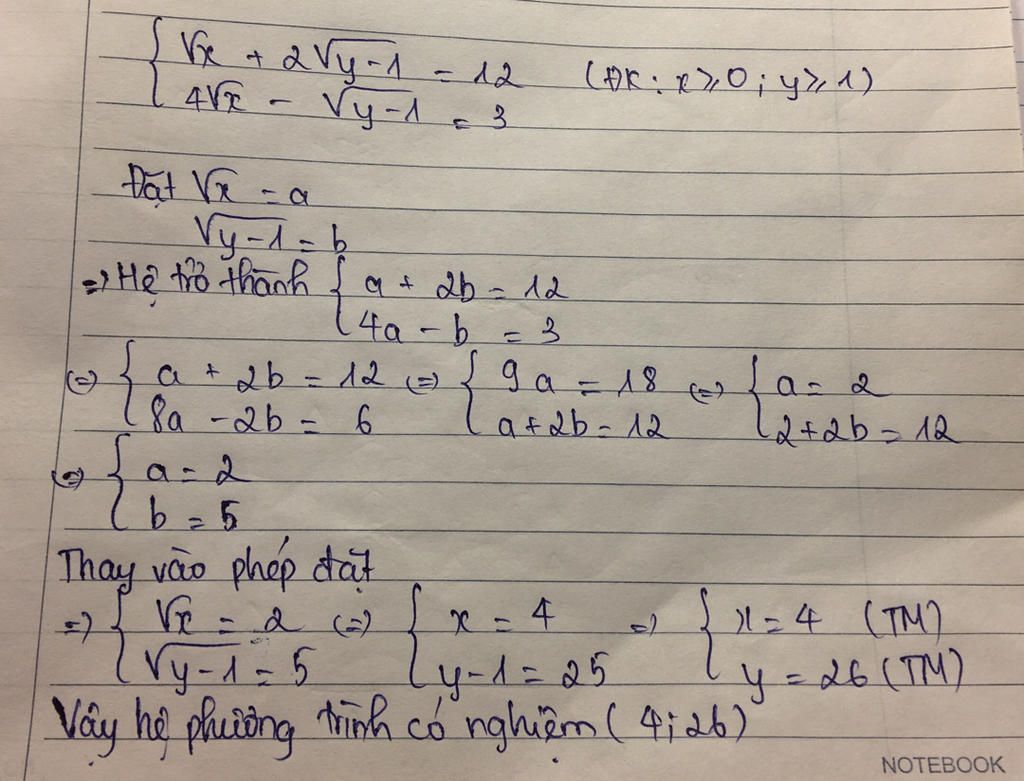 { √x + 2√(y-1) = 12 (ĐK: x ≥ 0; y ≥ 1)
4√x - √(y-1) = 3
Đặt √x = a
√(y-1) = b
=> Hệ trở thành { a + 2b = 12
4a - b = 3
(=) { a + 2b = 12 (=) { 9a = 18 (=) { a = 2
8a - 2b = 6 a+2b = 12 2+2b = 12
(=) { a = 2
b = 5
Thay vào phép đặt
=> { √x = 2 (=) { x = 4 => { x = 4 (TM)
√(y-1) = 5 y-1 = 25 y = 26 (TM)
Vậy hệ phương trình có nghiệm (4; 26)
NOTEBOOK